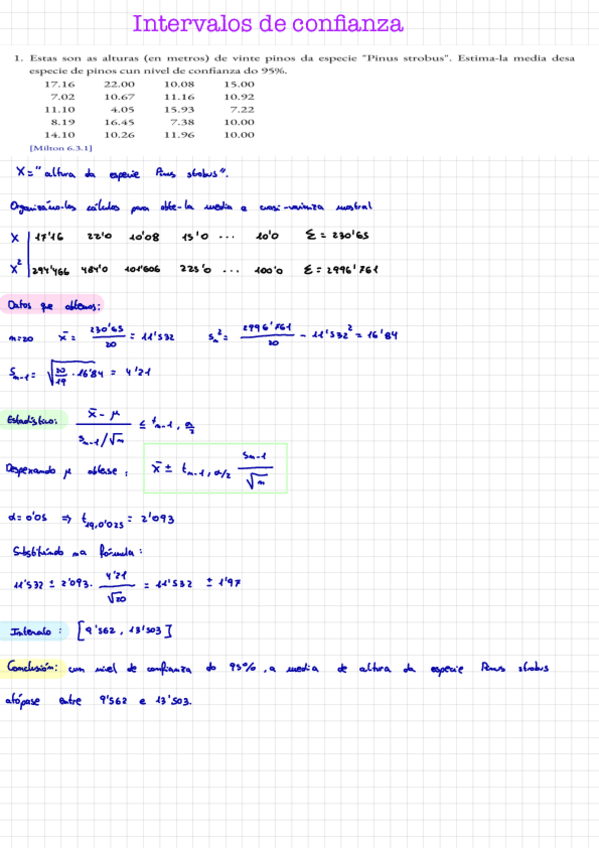 Intervalos de confianza
1. Estas son as alturas (en metros) de vinte pinos da especie "Pinus strobus". Estima-la media desa
especie de pinos cun nivel de confianza do 95%.
17.16 22.00 10.08 15.00
7.02 10.67 11.16 10.92
11.10 4.05 15.93 7.22
8.19 16.45 7.38 10.00
14.10 10.26 11.96 10.00
[Milton 6.3.1]
X = "altura da especie Pinus strobus".
Organizámo-los cálculos para obte-la media a cuasi-varianza mostral
X | 17'16 22'0 10'08 15'0 ... 10'0 Σ = 230'65
X² | 294'466 484'0 101'606 225'0 ... 100'0 Σ = 2996'761
Datos que obtemos:
n=20 x̄ = 230'65/20 = 11'532 sₙ² = 2996'761/20 - 11'532² = 16'84
sₙ₋₁ = √(20/19 · 16'84) = 4'21
Estadístico: (x̄ - μ)/(sₙ₋₁/√n) ≤ tₙ₋₁, α/2
Despexando μ obtense: x̄ ± tₙ₋₁, α/2 sₙ₋₁/√n
α = 0'05 ⇒ t₁₉,₀'₀₂₅ = 2'093
Substituíndo na fórmula:
11'532 ± 2'093 · 4'21/√20 = 11'532 ± 1'97
Intervalo: [9'562, 13'503]
Conclusión: cun nivel de confianza do 95%, a media de altura da especie Pinus strobus
atópase entre 9'562 e 13'503.